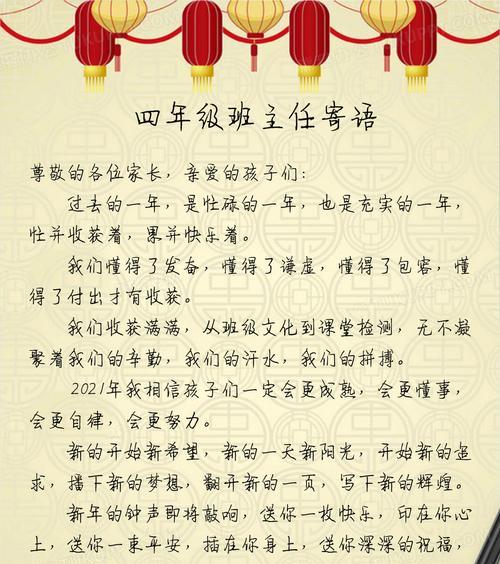 四年级班主任寄语
尊敬的各位家长，亲爱的孩子们：
过去的一年，是忙碌的一年，也是充实的一年，
忙并收获着，累并快乐着。
我们懂得了发奋，懂得了谦虚，懂得了包容，懂
得了付出才有收获。
我们收获满满，从班级文化到课堂检测，无不凝
聚着我们的辛勤，我们的汗水，我们的拼搏。
2021年我相信孩子们一定会更成熟，会更懂事，
会更自律，会更努力。
新的开始新希望，新的一天新阳光，开始新的追
求，播下新的梦想，翻开新的一页，写下新的辉煌。
新年的钟声即将敲响，送你一枚快乐，印在你心
上，送你一束平安，插在你身上，送你深深的祝福，